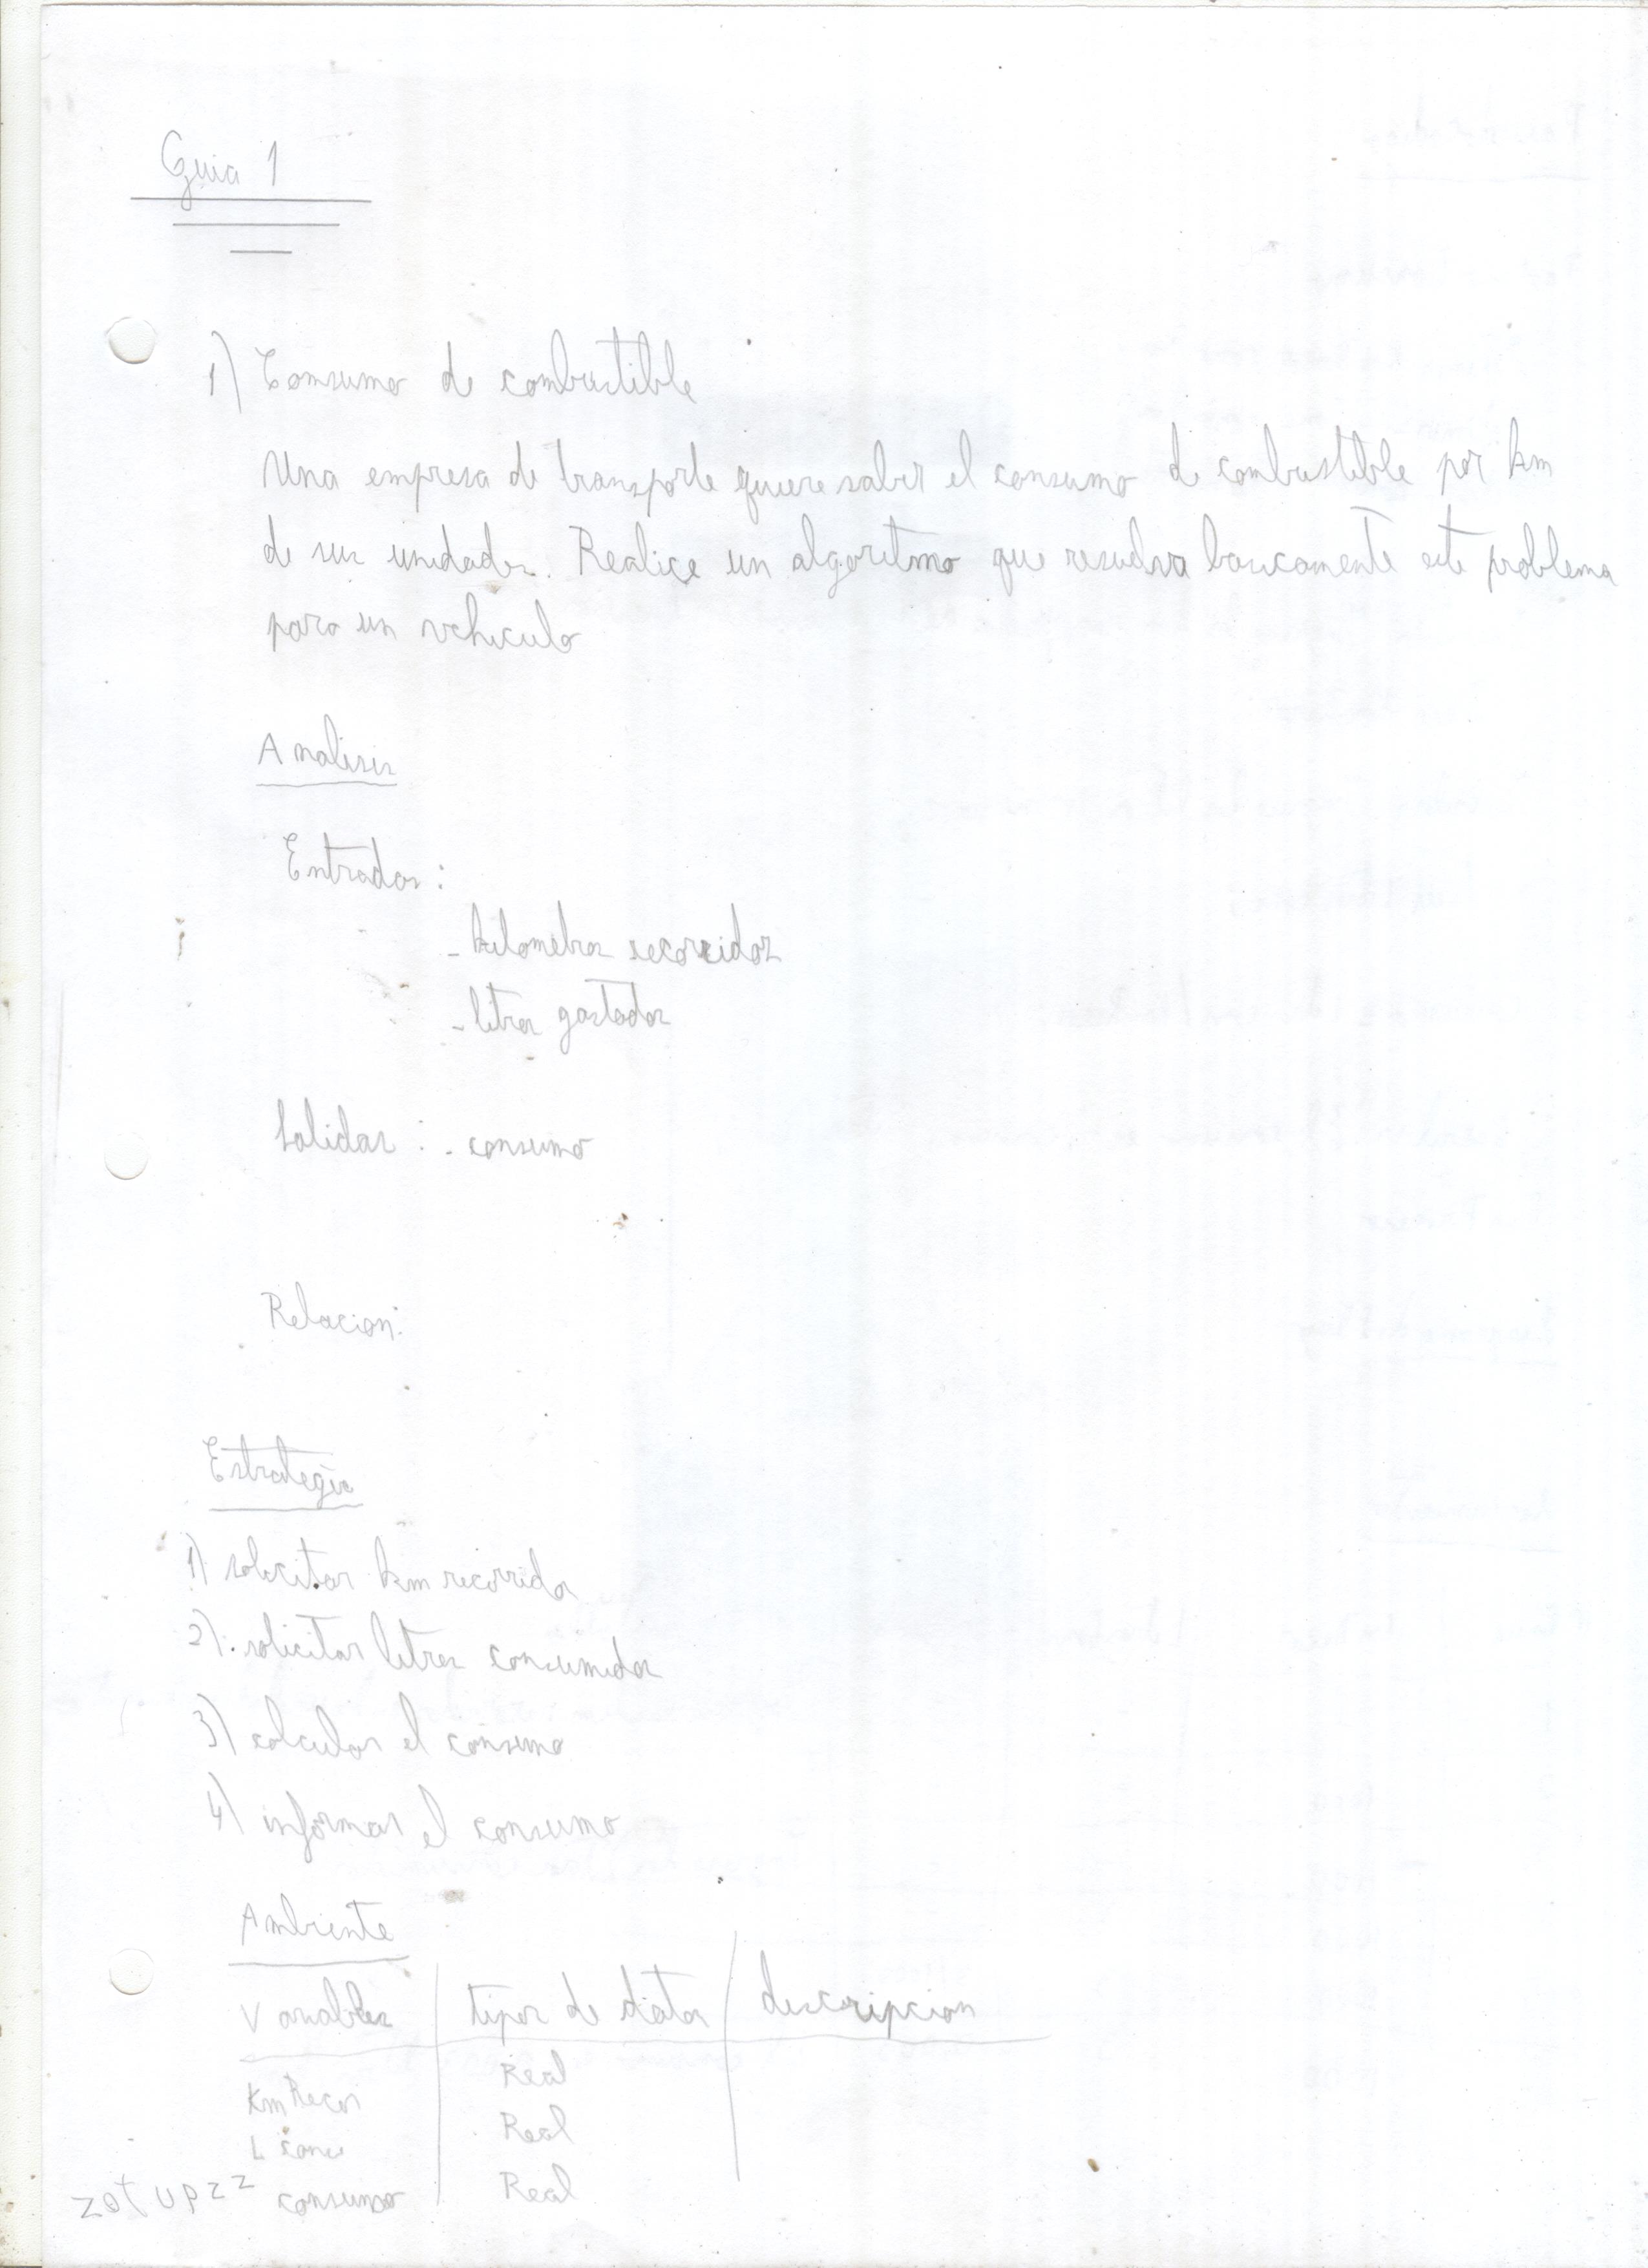 Guia 1
1) Consumo de combustible
Una empresa de transporte quiere saber el consumo de combustible por km
de sus unidades. Realice un algoritmo que resuelva basicamente este problema
para un vehiculo
Analisis
Entradas:
- kilometros recorridos
- litros gastados
Salidas: - consumo
Relacion:
Estrategia
1) solicitar km recorridos
2) solicitar litros consumidos
3) calcular el consumo
4) informar el consumo
Ambiente
Variables | tipos de datos | descripcion
Km Recor Real
L cons Real
consumo Real
zotupzz